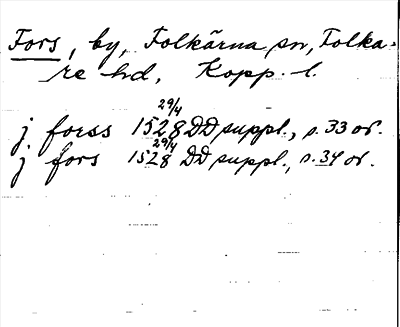 Fors, by, Folkärna sn, Folka-
re hd, Kopp. l.
j forss 1528 29/4 DD suppl., s. 33 or.
j fors 1528 29/4 DD suppl., s. 34 or.